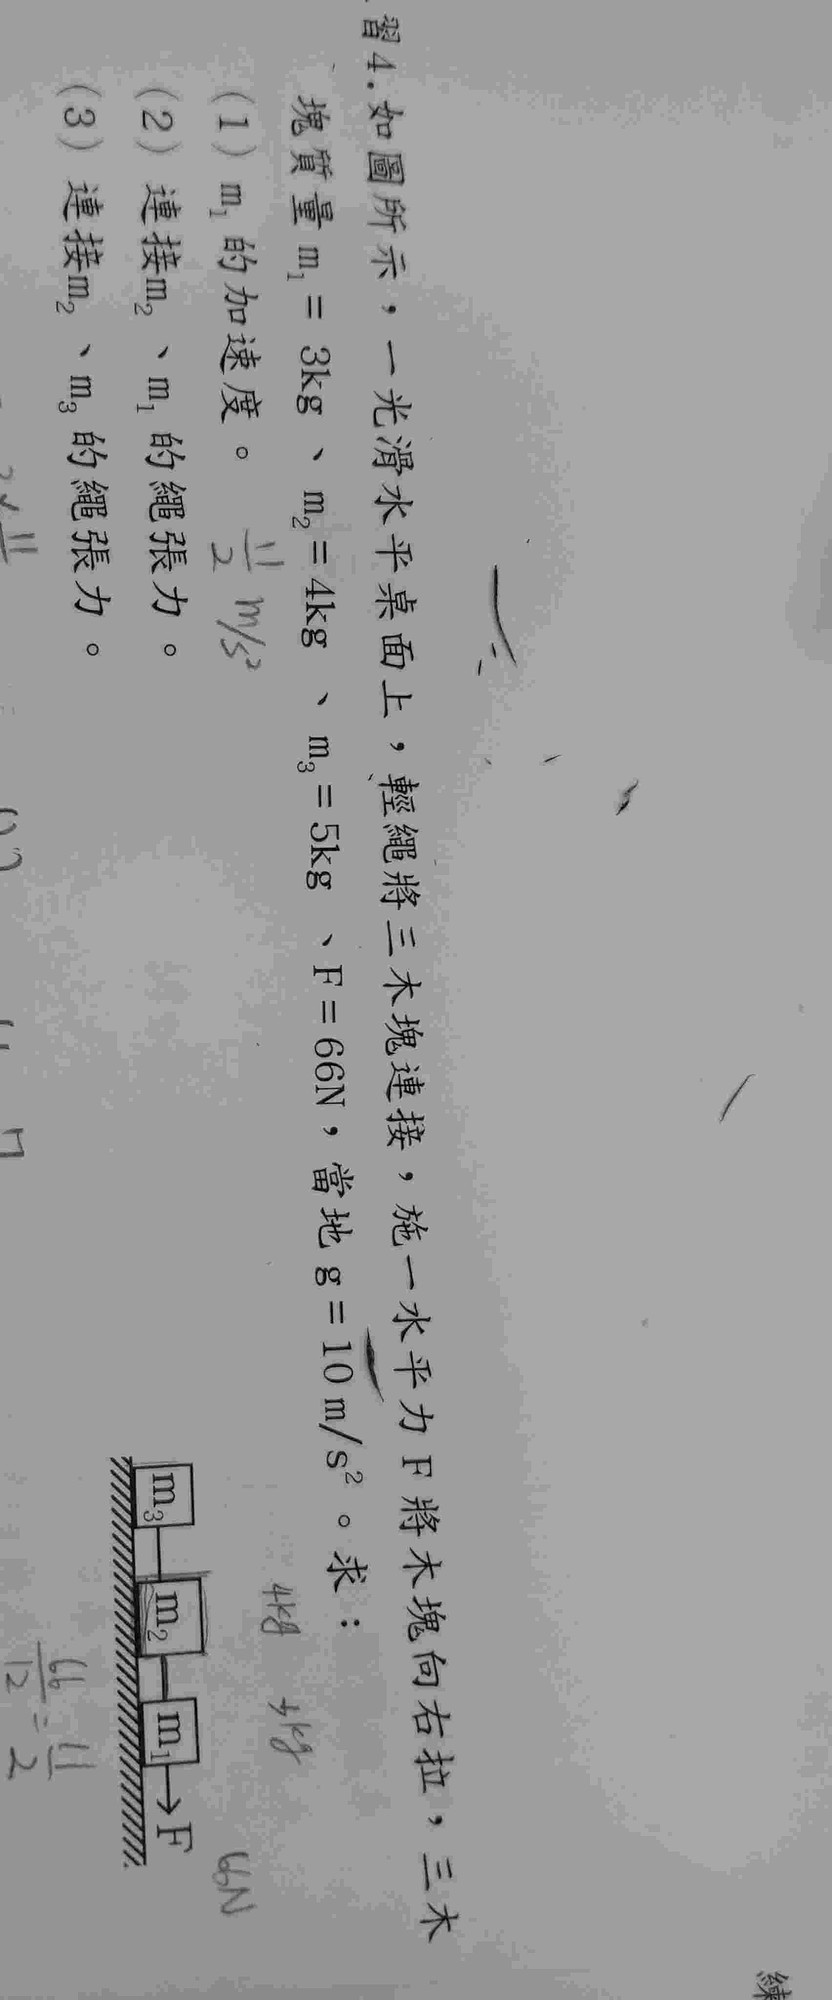 習4.如圖所示，一光滑水平桌面上，輕繩將三木塊連接，施一水平力 F 將木塊向右拉，三木
塊質量 m₁ = 3kg、m₂ = 4kg、m₃ = 5kg、F = 66N，當地 g = 10 m/s²。求：
(1) m₁ 的加速度。 11/2 m/s²
(2) 連接m₂、m₁ 的繩張力。
(3) 連接m₂、m₃ 的繩張力。
4kg
66N
m₃ m₂ m₁ F
66/12 = 11/2
練